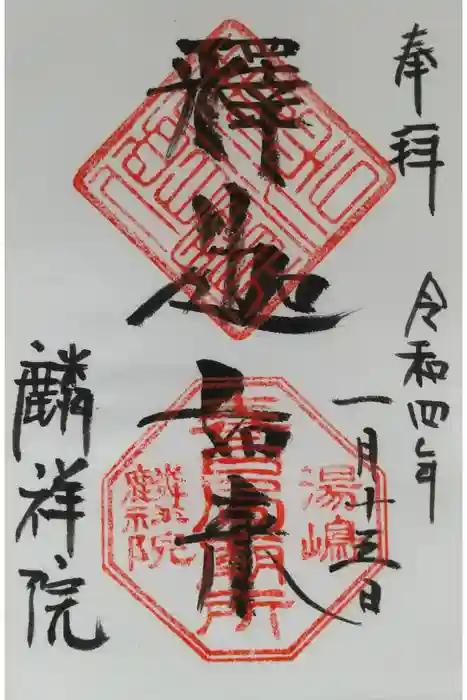 奉拝
令和四年
一月十三日
釋迦如来
湯嶋
春日局廟所
麟祥院
麟祥院